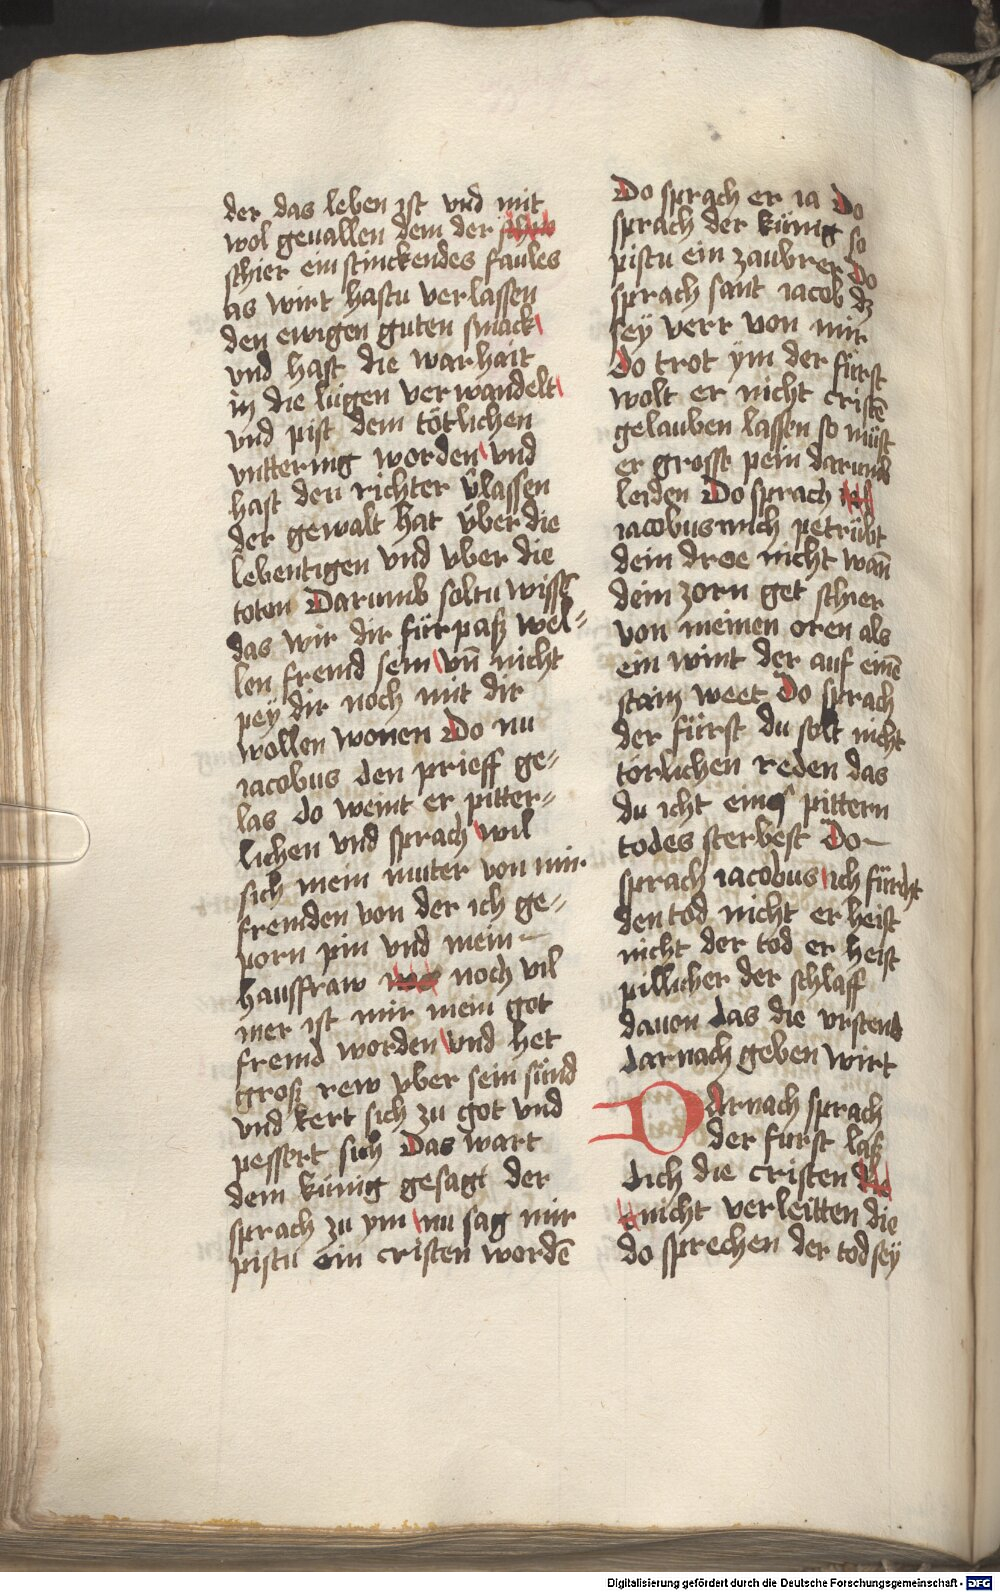 der das leben ist vnd mit
wol geuallen dem der
schier ein stinckendes faules
as wirt hastu verlassen
den ewigen guten smack
vnd hast die warhait
in die lugen verwandelt
vnd pist dem tötlichen
vnttering worden vnd
hast den richter v̄lassen
der gewalt hat v̈ber die
lebentigen vnd vber die
toten Darumb soltu wissē
das wir dir fürpasz wel⸗
len fremd sein vn̄ nicht
pey dir noch mit dir
wollen wonen Do nu
iacobus den prieff ge⸗
las do weint er pitter⸗
lichen vnd sprach wil
sich mein muter von mir
fremden von der ich ge⸗
porn pin vnd mein
hausfraw noch vil
mer ist mir mein got
fremd worden vnd het
grosz rew vber sein sünd
vnd kert sich zu got vnd
pessert sich Das wart
dem künig gesagt der
sprach zu ym nu sag mir
pistu ein cristen wordē
Do sprach er ia Do
sprach der künig so
pistu ein zaubrer Do
sprach sant iacob dz
sey verr von mir
Do trot ym der fürst
wolt er nicht cristē
gelauben lassen so müst
er grosse pein darumb
leiden Do sprach
iacobus mich petrübt
dein droe nicht wan̄
dein zorn get schier
von meinen oren als
ein wint der auf einē
stain weet Do sprach
der fürst du solt nicht
törlichen reden das
du icht eins pittern
todes sterbest Do
sprach iacobus ich fürcht
den tod nicht er heist
nicht der tod er heist
pillicher der schlaff
dauon das die vrstend
darnach geben wirt
Darnach sprach
der furst lasz
dich die cristen
nicht verleitten die
do sprechen der tod sey
Digitalisierung gefördert durch die Deutsche Forschungsgemeinschaft - DFG